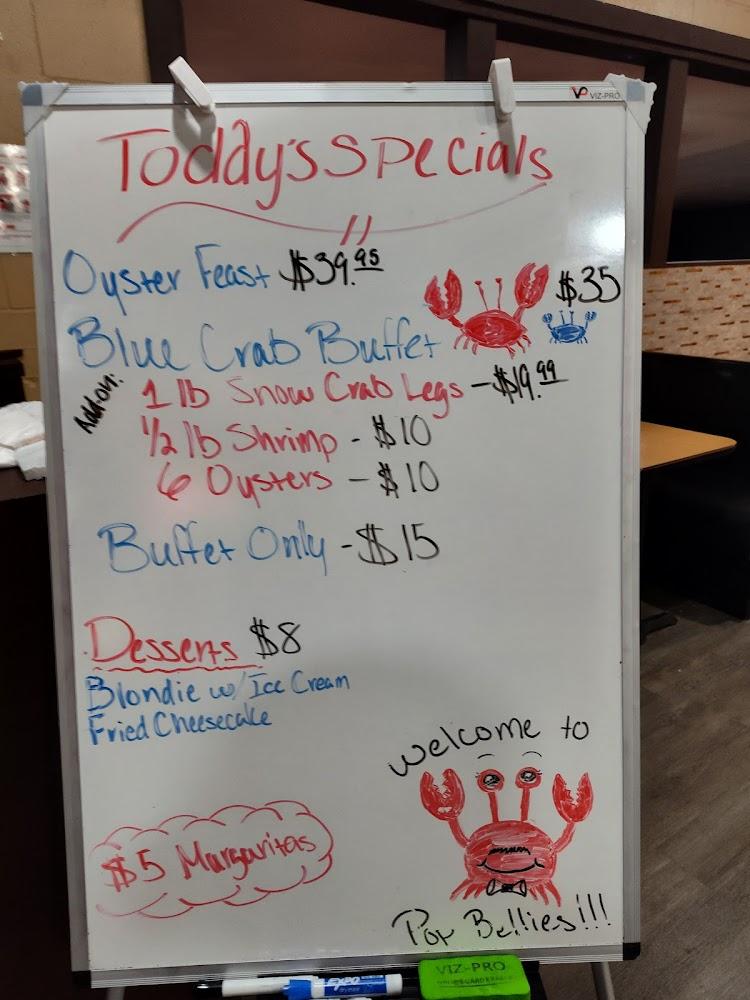 VP VIZ-PRO
Toddy's Specials
Oyster Feast $39.95
Blue Crab Buffet $35
Add-on:
1 lb Snow Crab Legs - $19.99
1/2 lb Shrimp - $10
6 Oysters - $10
Buffet Only - $15
Desserts $8
Blondie w/ Ice Cream
Fried Cheesecake
$5 Margaritas
Welcome to
Pop Bellies!!!
EXPO
VIZ-PRO